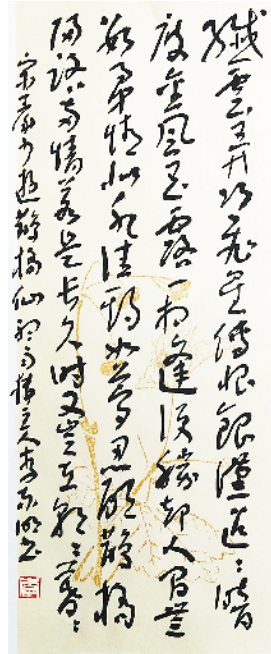 纖雲弄巧飛星傳恨銀漢迢〻暗
度金風玉露一相逢便勝却人间無
數柔情似水佳期如夢忍顧鵲橋
歸路兩情若是长久时又豈在朝〻暮〻
宋秦少游鵲橋仙書